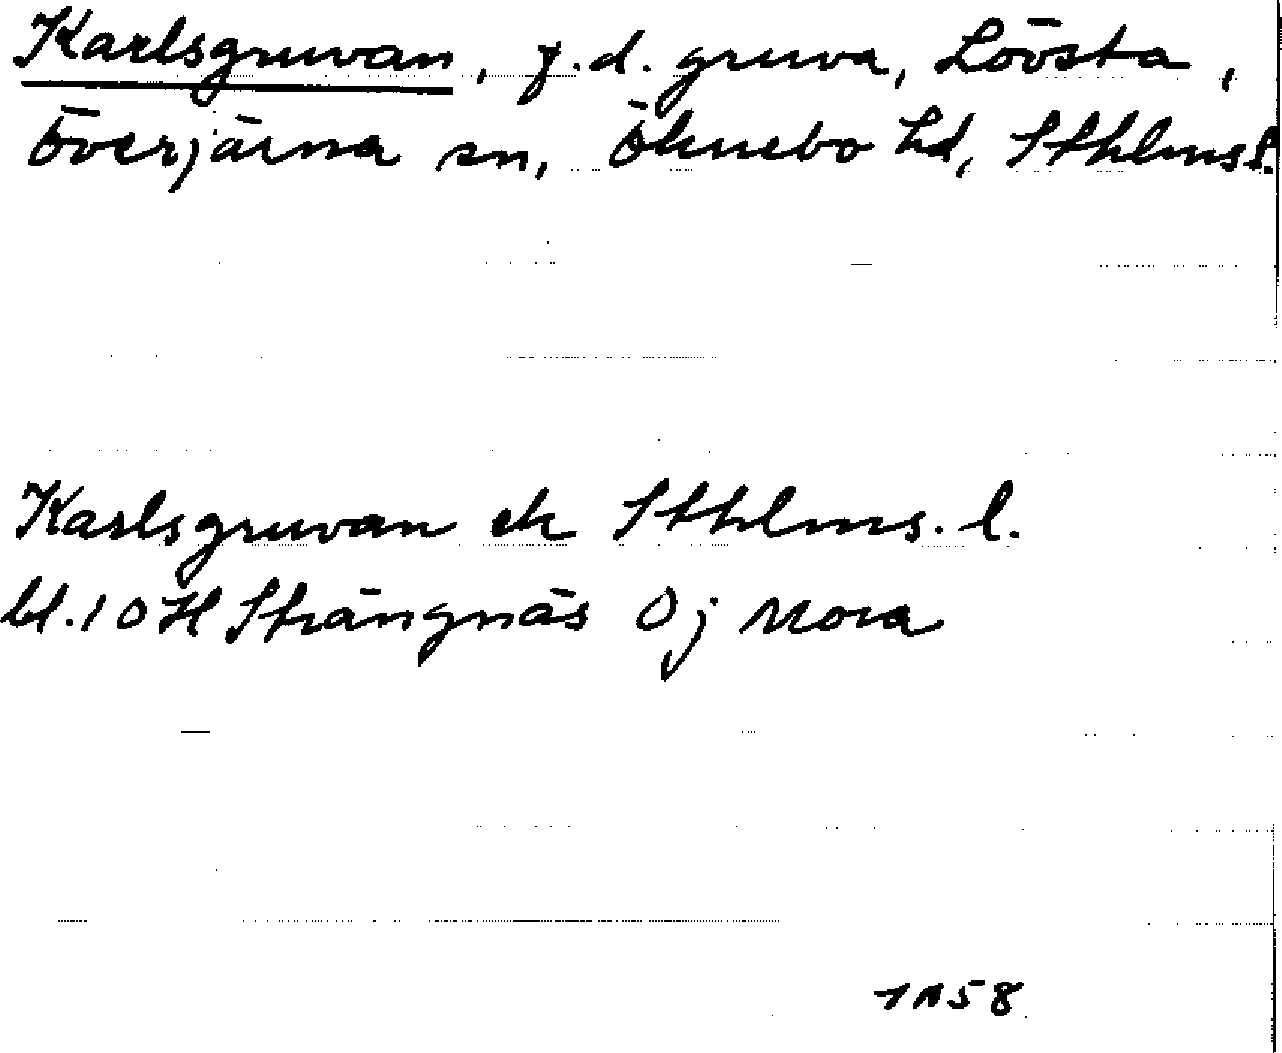 Karlsgruvan, f.d. gruva, Lövsta,
Överjärna sn, Öknebo hd, Sthlms l.
Karlsgruvan ek Sthlms. l.
bl. 10 H Strängnäs 0 j Mora
1958